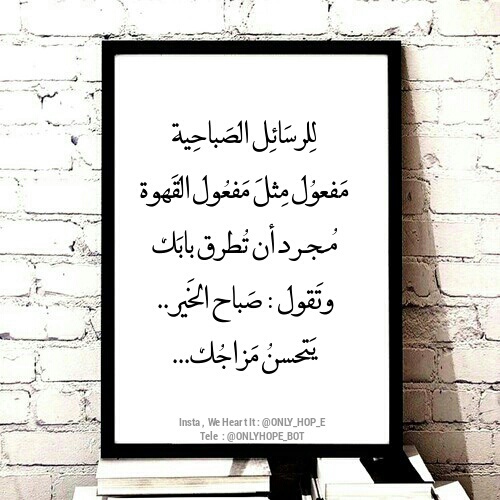 لِلرسَائِل الصَباحِية
مَفعوُل مِثلَ مَفعُول القَهوة
مُجرد أن تُطرق بابَك
وتَقول : صَباح الخَير..
يَتحسنُ مَزاجُك...
Insta , We Heart It : @ONLY_HOP_E
Tele : @ONLYHOPE_BOT